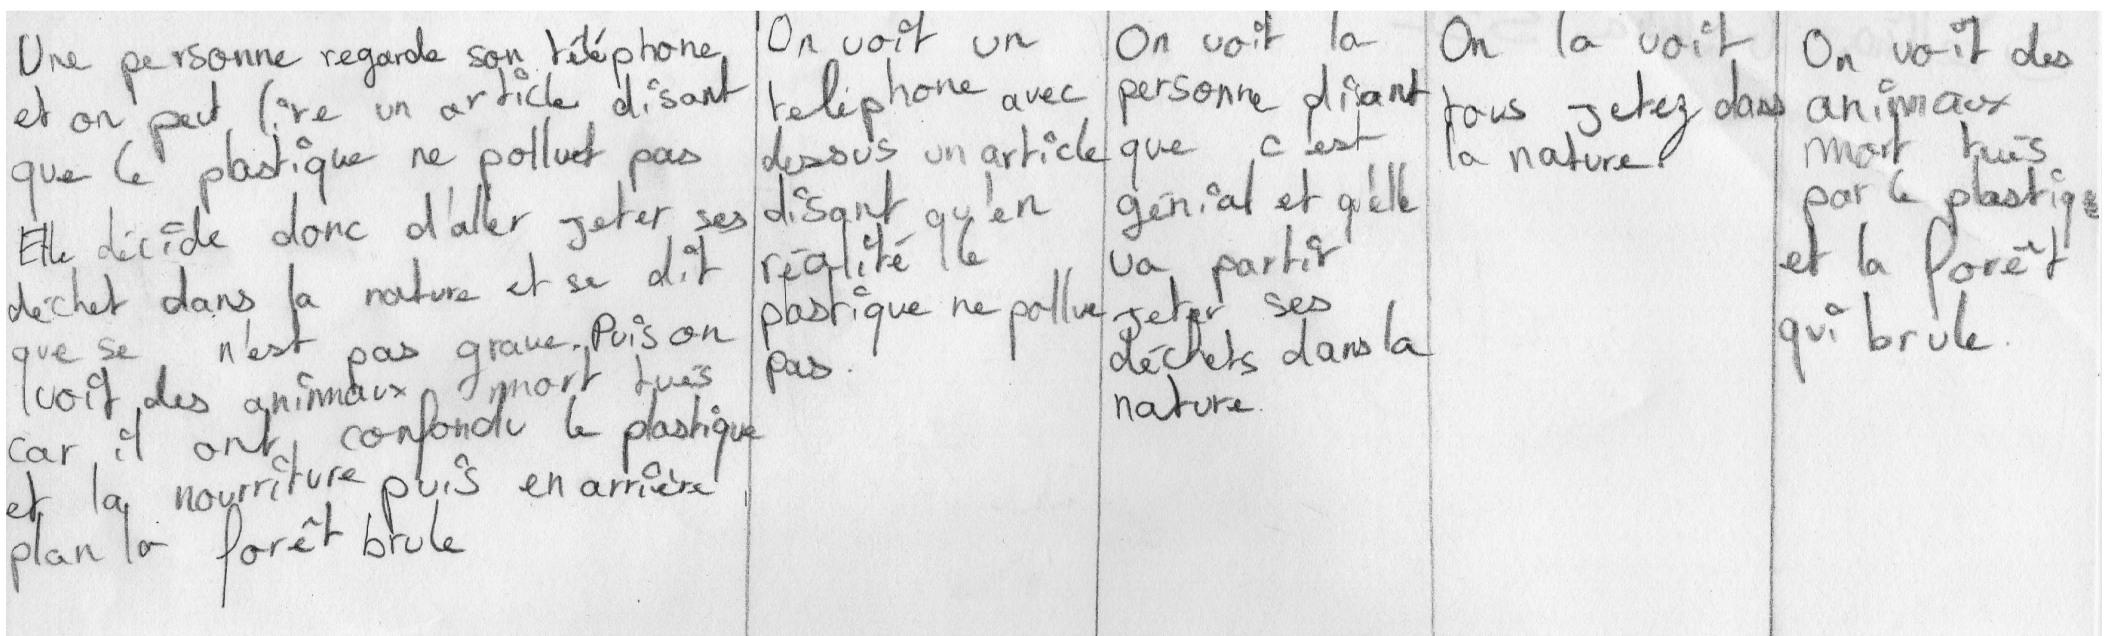 Une personne regarde son téléphone
et on peut lire un article disant
que le plastique ne polluet pas
Elle décide donc d'aller jeter ses
déchet dans la nature et se dit
que se n'est pas grave. Puis on
voit des animaux mort tués
car il ont confondu le plastique
et la nourriture puis en arrière
plan la forêt brule
On voit un
teléphone avec
dessus un article
disant qu'en
réalité le
pastique ne pollue
pas.
On voit la
personne disant
que c'est
génial et qu'elle
va partir
jeter ses
déchets dans la
nature.
On la voit
tous jetez dans
la nature.
On voit des
animaux
mort tués
par le plastique
et la forêt
qui brule.